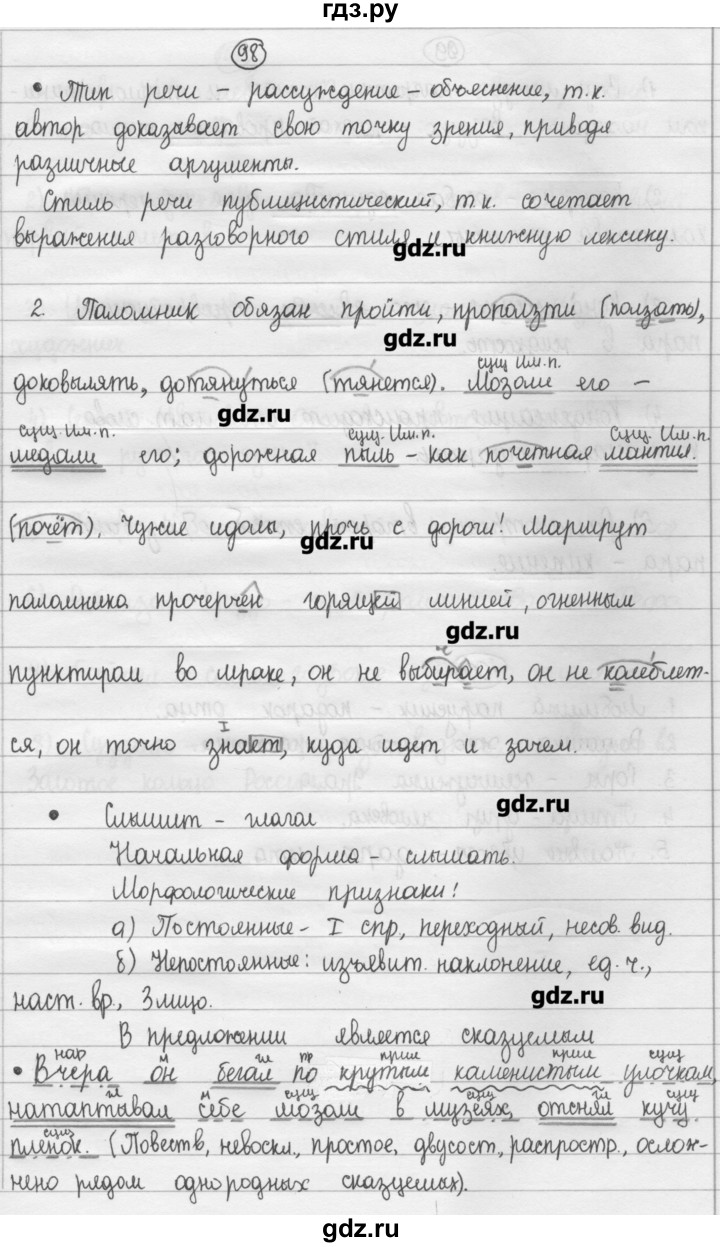 гдз.ру
98
• Тип речи – рассуждение – объяснение, т.к.
автор доказывает свою точку зрения, приводя
различные аргументы.
Стиль речи публицистический, т.к. сочетает
выражения разговорного стиля и книжную лексику.
gdz.ru
2. Паломник обязан пройти, проползти (ползать),
gdz.ru
сущ. Им. п.
доковылять, дотянуться (тянется). Мозоли его –
gdz.ru
сущ. Им. п. сущ. Им. п. сущ. Им. п.
медали его; дорожная пыль – как почетная мантия
(почёт). Чужие идолы, прочь с дороги! Маршрут
gdz.ru
паломника прочерчен горящей линией, огненным
gdz.ru
пунктиром во мраке, он не выбирает, он не колеблет-
I
ся, он точно знает, куда идет и зачем.
gdz.ru
• Слышит – глагол
Начальная форма – слышать.
Морфологические признаки:
а) Постоянные – I спр., переходный, несов. вид.
б) Непостоянные: изъявит. наклонение, ед. ч.,
наст. вр., 3 лицо.
gdz.ru
В предложении является сказуемым
нар м гл пр прил прил сущ
• Вчера он бегал по крутым каменистым улочкам,
гл м сущ сущ гл сущ
натаптывал себе мозоли в музеях, отснял кучу
сущ
пленок. (Повеств., невоскл., простое, двусост., распростр., ослож-
нено рядом однородных сказуемых).
gdz.ru